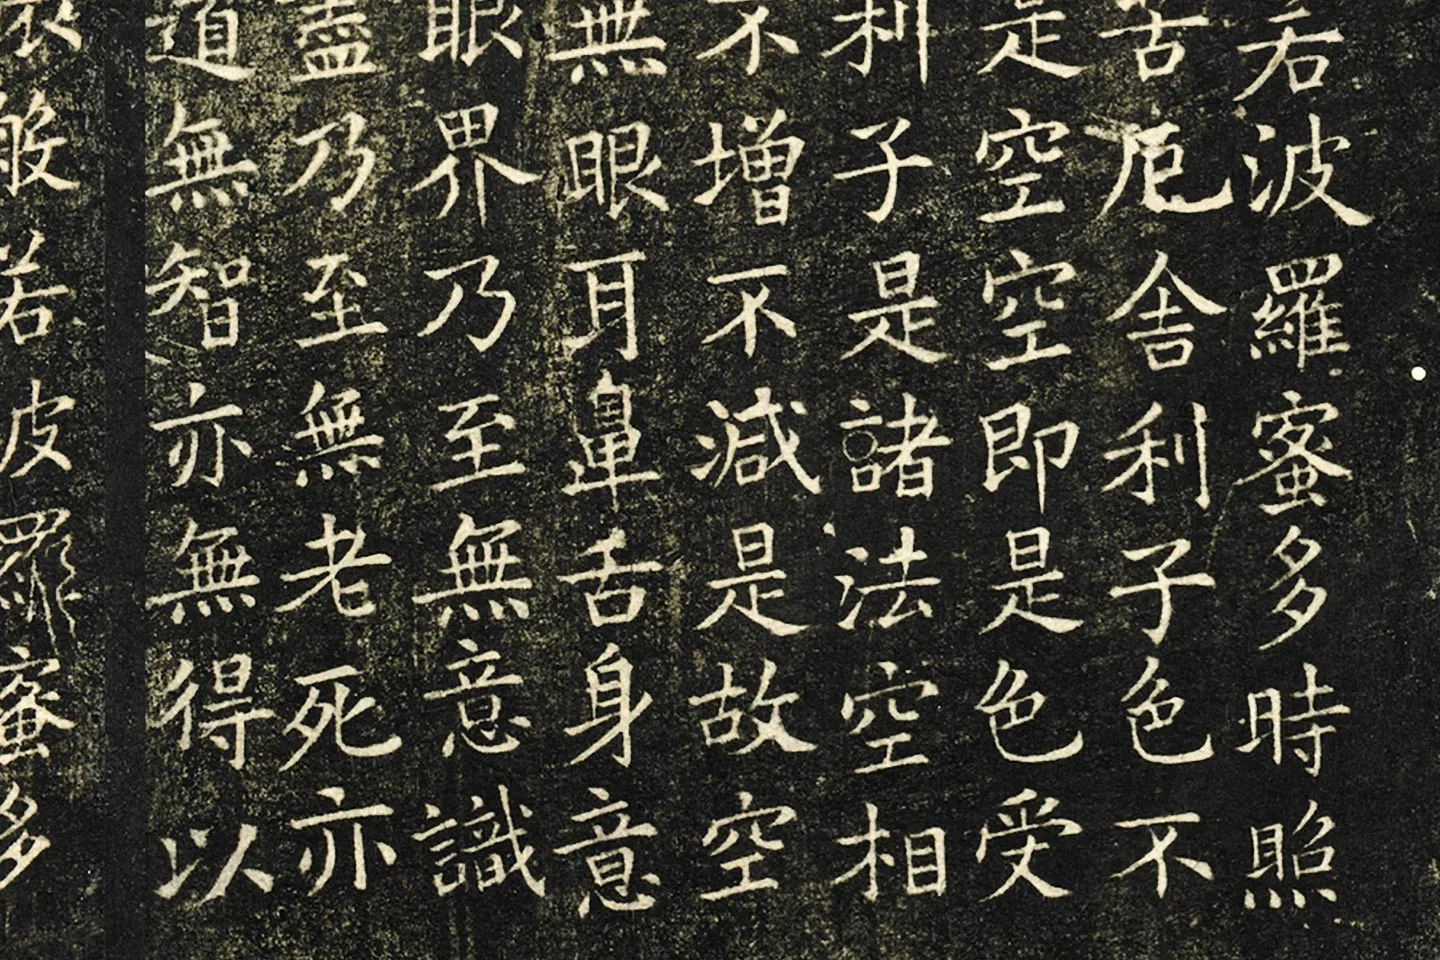 若波羅蜜多時照
苦厄舍利子色不
是空空即是色受
利子是諸法空相
不增不減是故空
無眼耳鼻舌身意
眼界乃至無意識
盡乃至無老死亦
道無智亦無得以
般若波羅蜜多